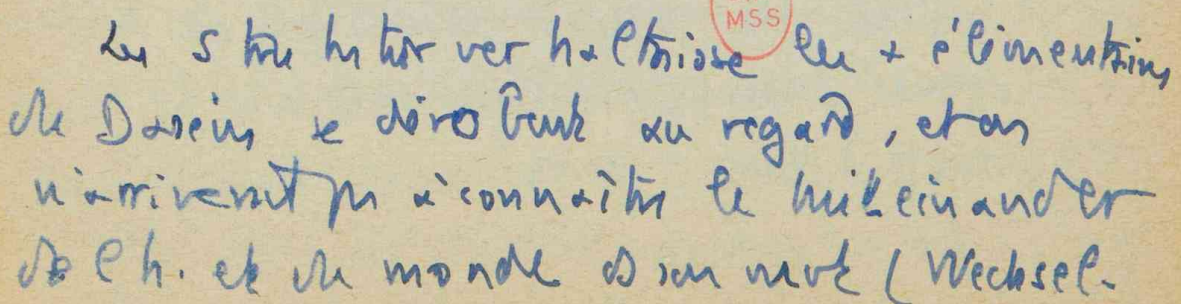 MSS
Les Strukturverhaltnisse les + élémentaires
de Dasein se dérobent au regard, et on
n'arriverait pas à connaître le Miteinander
de l'h. et du monde ds son
(Wechsel-